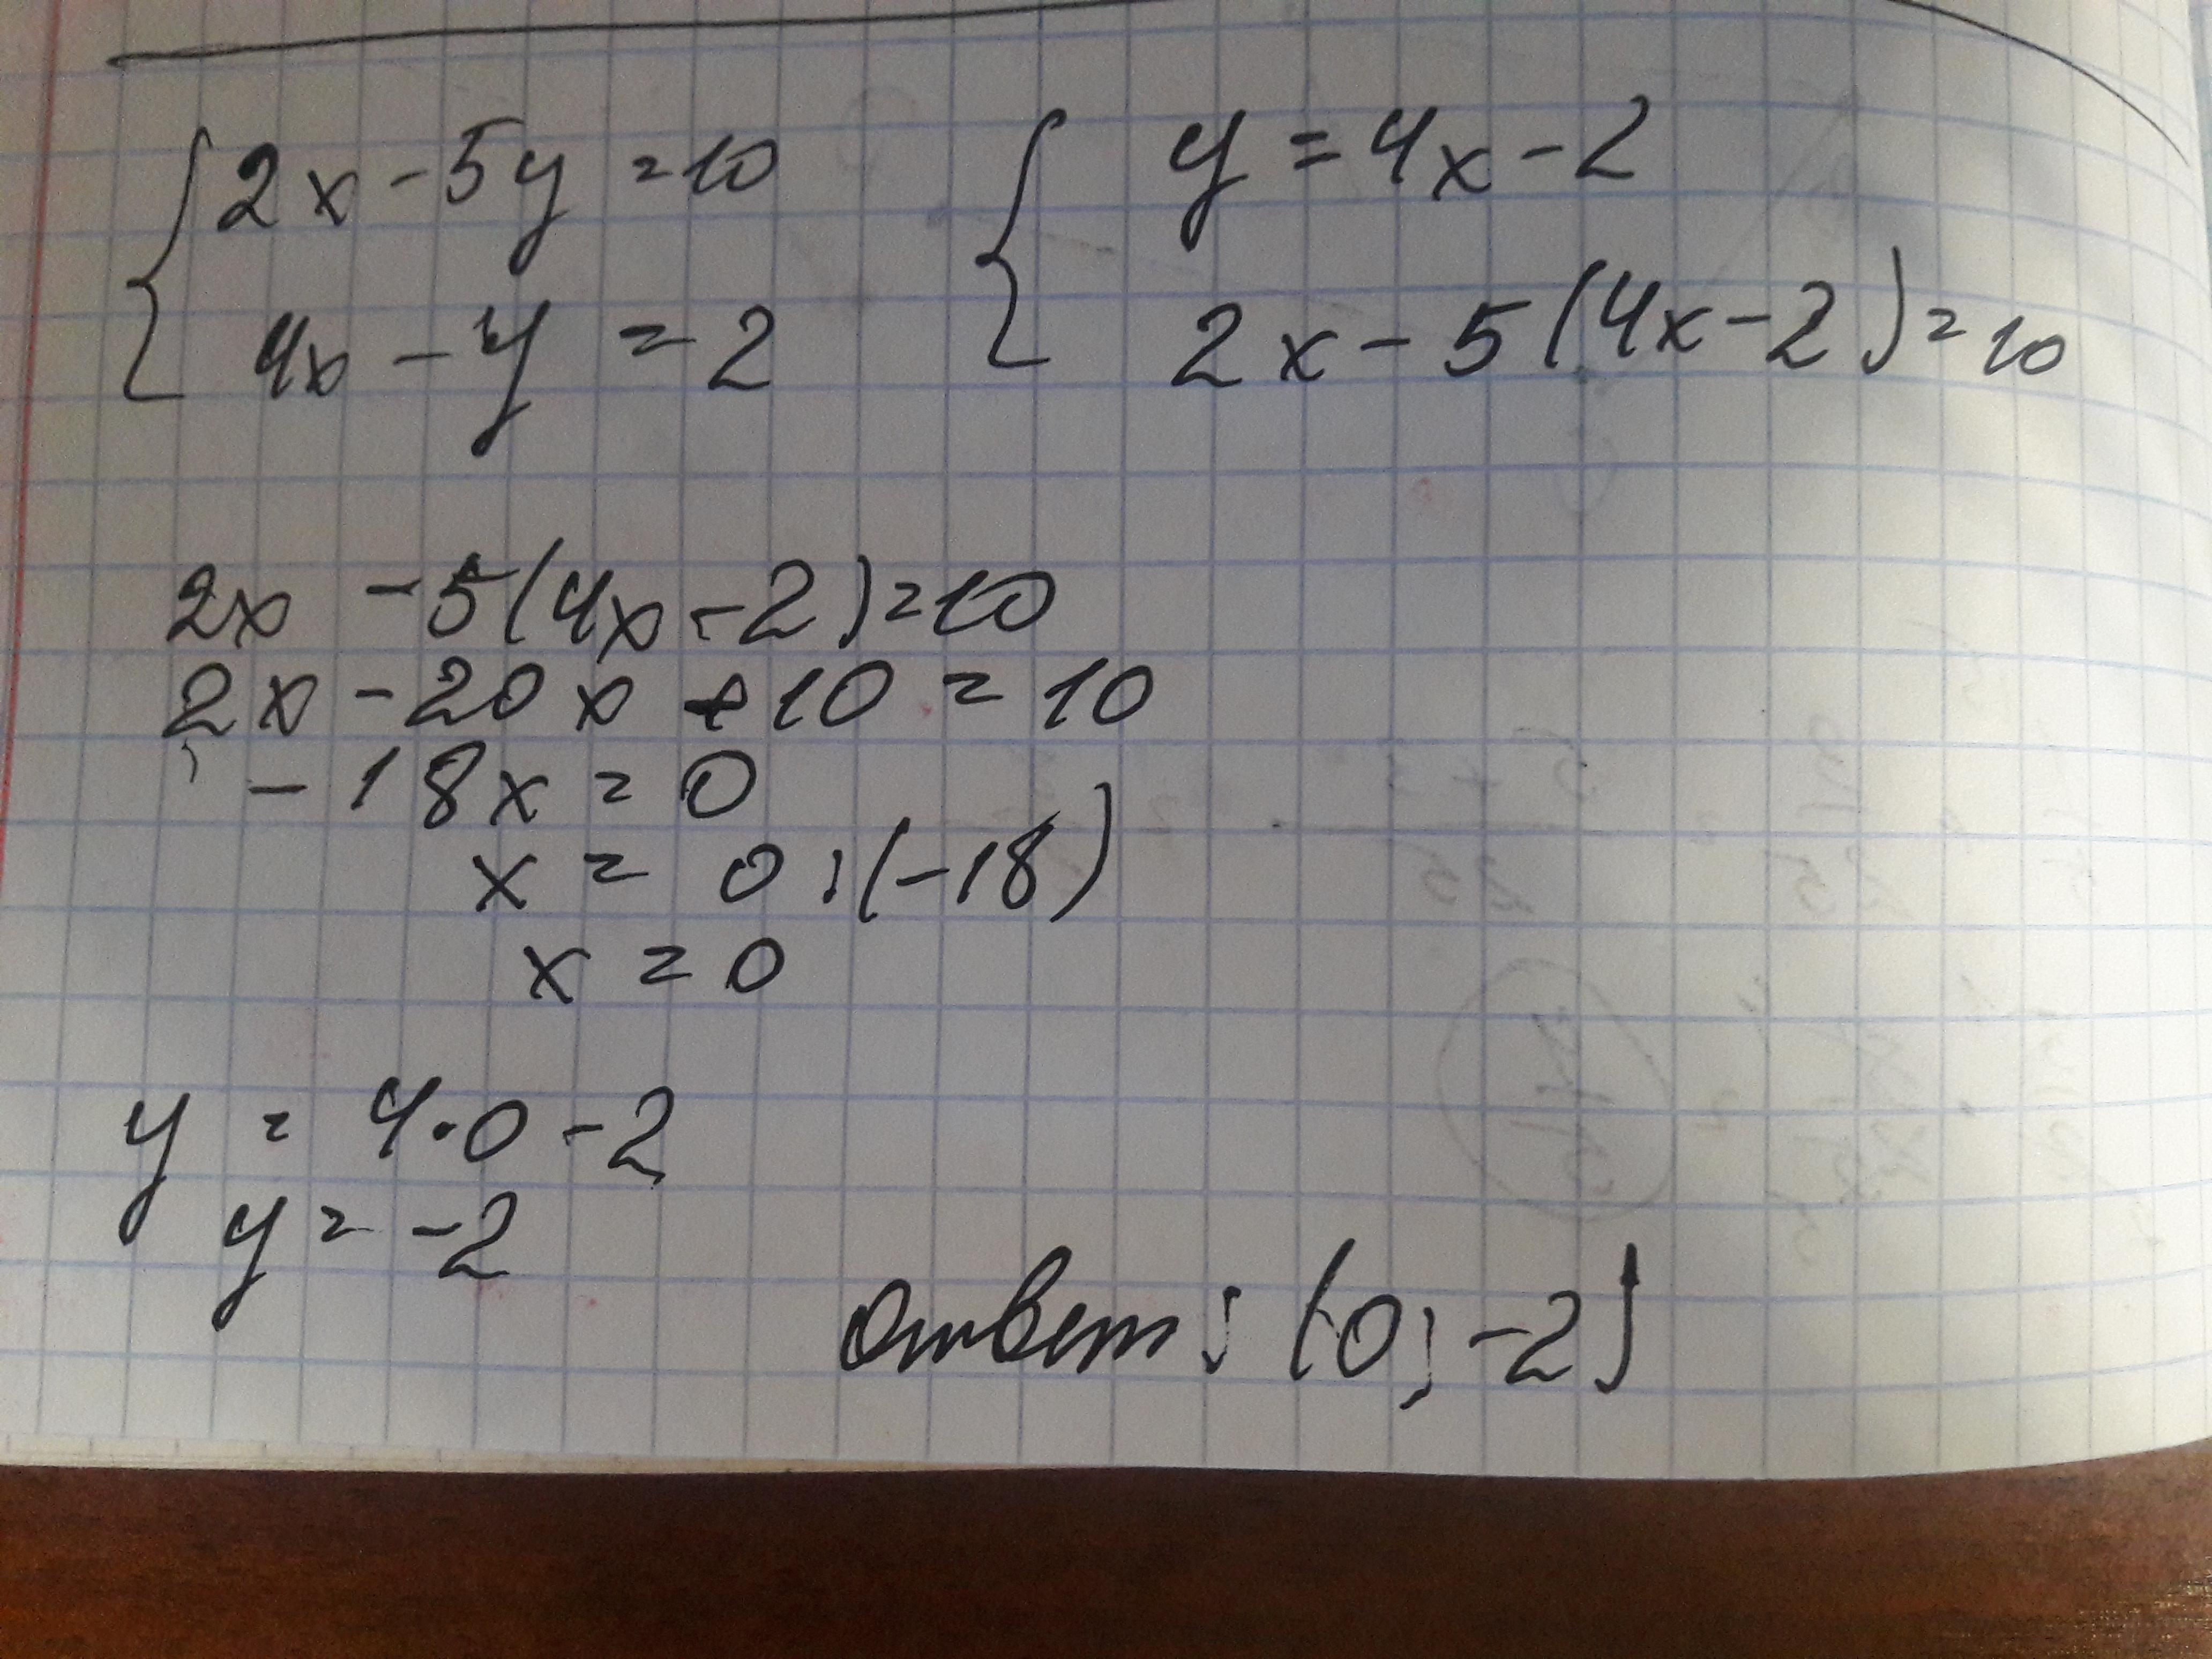 2x - 5y = 10
4x - y = 2
y = 4x - 2
2x - 5(4x - 2) = 10
2x - 5(4x - 2) = 10
2x - 20x + 10 = 10
- 18x = 0
x = 0 : (-18)
x = 0
y = 4·0 - 2
y = -2
Ответ: (0; -2)